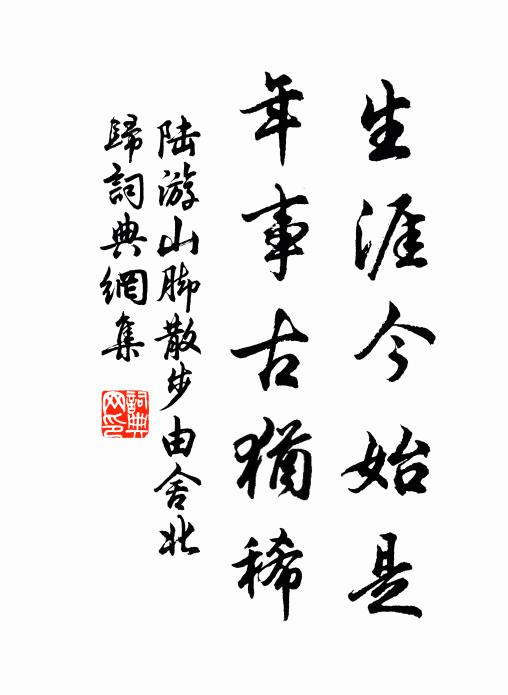 生涯今始是
年事古猶稀
陸游山脚散步由舍北
歸詞典網集
詞典
网印